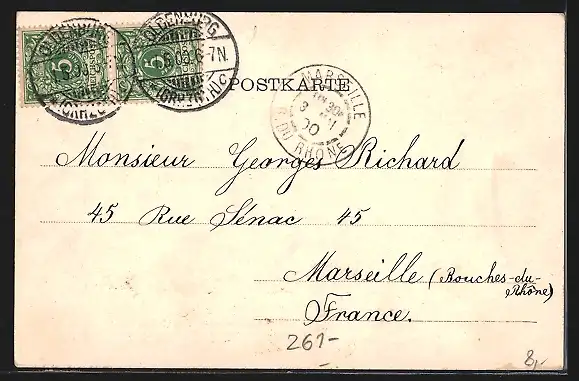 OLDENBURG
(GRHZGTH.)
5
OLDENBURG
6-7N.
(GRHZGTH.) c
5
POSTKARTE
MARSEILLE
B. DU RHONE
Monsieur Georges Richard
45 Rue Sénac 45
Marseille (Bouches-du-
Rhône)
France.
261-
8,-